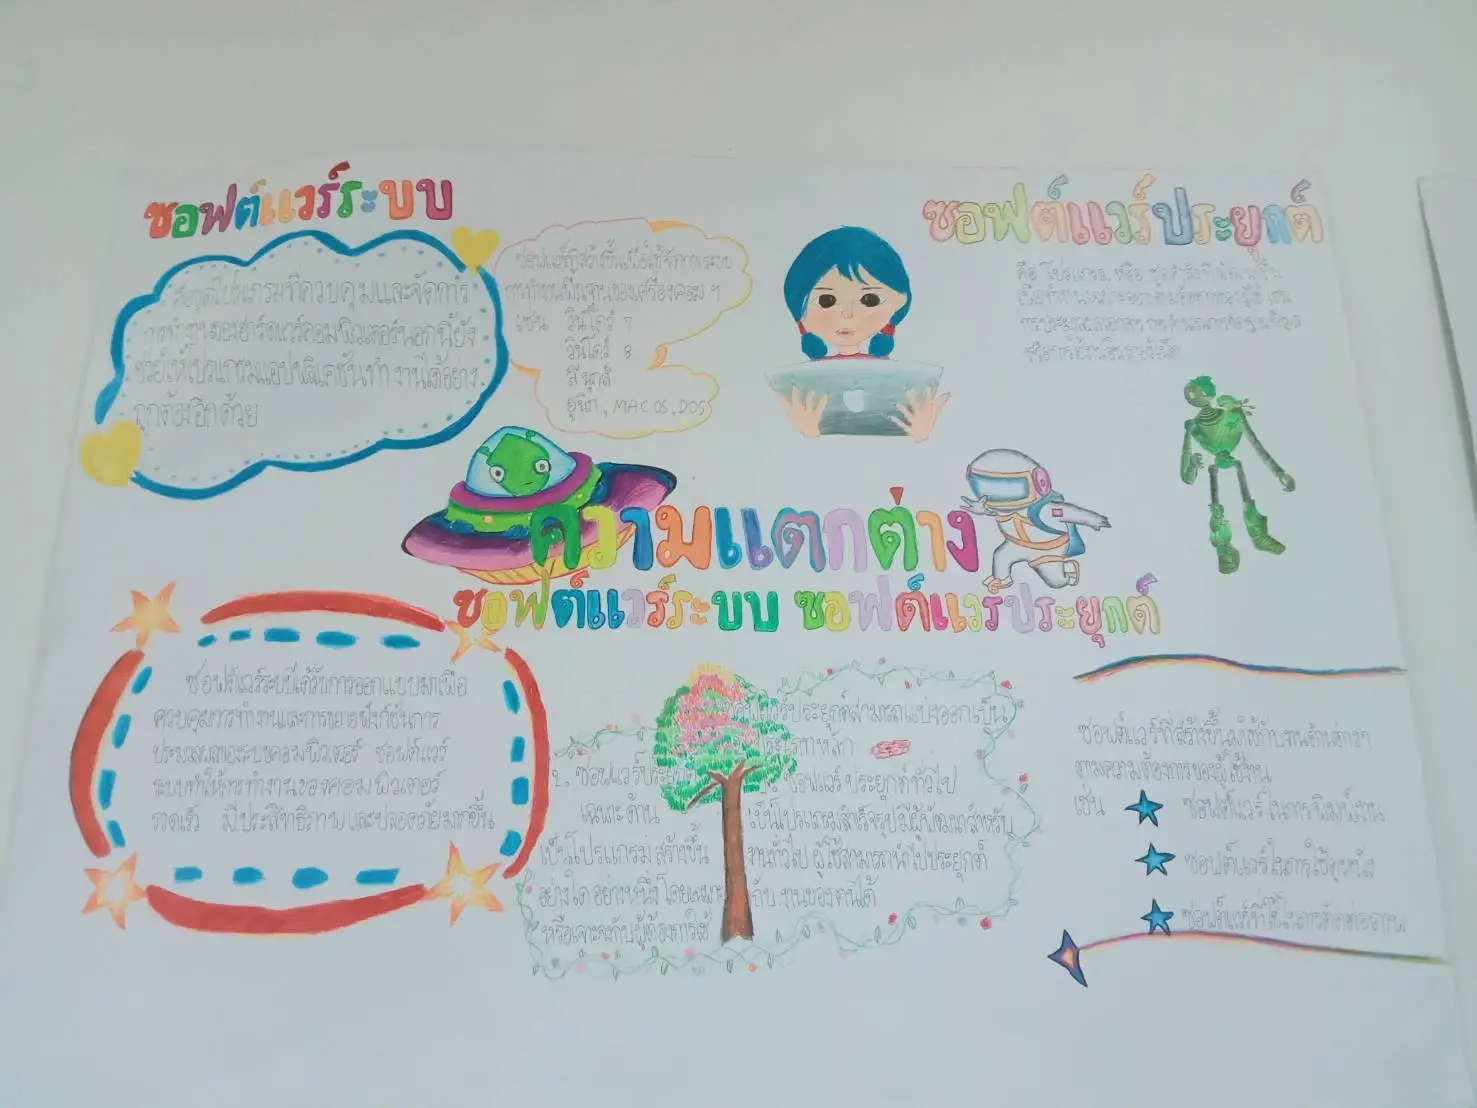 ซอฟต์แวร์ระบบ
โปรแกรมที่ควบคุมและจัดการ
การทำงานของฮาร์ดแวร์คอมพิวเตอร์นอกนี้ยัง
ช่วยให้โปรแกรมแอปพลิเคชันทำงานได้อย่าง
ถูกต้องอีกด้วย
ซอฟแวร์ที่สร้างขึ้นเพื่อใช้จัดการระบบ
การทำงานพื้นฐานของเครื่องคอม ฯ
เช่น วินโดว์ 7
วินโดว์ 8
ลีนุกส์
MAC OS, DOS
ซอฟต์แวร์ประยุกต์
คือ โปรแกรม หรือ ชุดคำสั่งที่
ความแตกต่าง
ซอฟต์แวร์ระบบ ซอฟต์แวร์ประยุกต์
ซอฟต์แวร์ระบบได้รับการออกแบบมาเพื่อ
ควบคุมการทำงานและการขยายฟังก์ชันการ
ประมวลผลของระบบคอมพิวเตอร์ ซอฟต์แวร์
ระบบทำให้การทำงานของคอมพิวเตอร์
รวดเร็ว มีประสิทธิภาพและปลอดภัยมากขึ้น
ประยุกต์สามารถแบ่งออกเป็น
2. ซอฟแวร์ประยุกต์
เฉพาะด้าน
เป็นโปรแกรมสร้างขึ้น
อย่างใดอย่างหนึ่งโดยเฉพาะ
หรือเจาะจงกับผู้ต้องการใช้
ซอฟแวร์ประยุกต์ทั่วไป
เป็นโปรแกรมสำเร็จรูปมีผู้พัฒนาสำหรับ
งานทั่วไป ผู้ใช้สามารถนำไปประยุกต์
กับงานของตนได้
ซอฟต์แวร์ที่สร้างขึ้นมาใช้กับงานด้านต่างๆ
ตามความต้องการของผู้ใช้งาน
เช่น ซอฟต์แวร์ในการพิมพ์งาน
ซอฟต์แวร์ในการใช้ดูหนัง
ซอฟต์แวร์ที่ใช้ในการตัดต่อภาพ